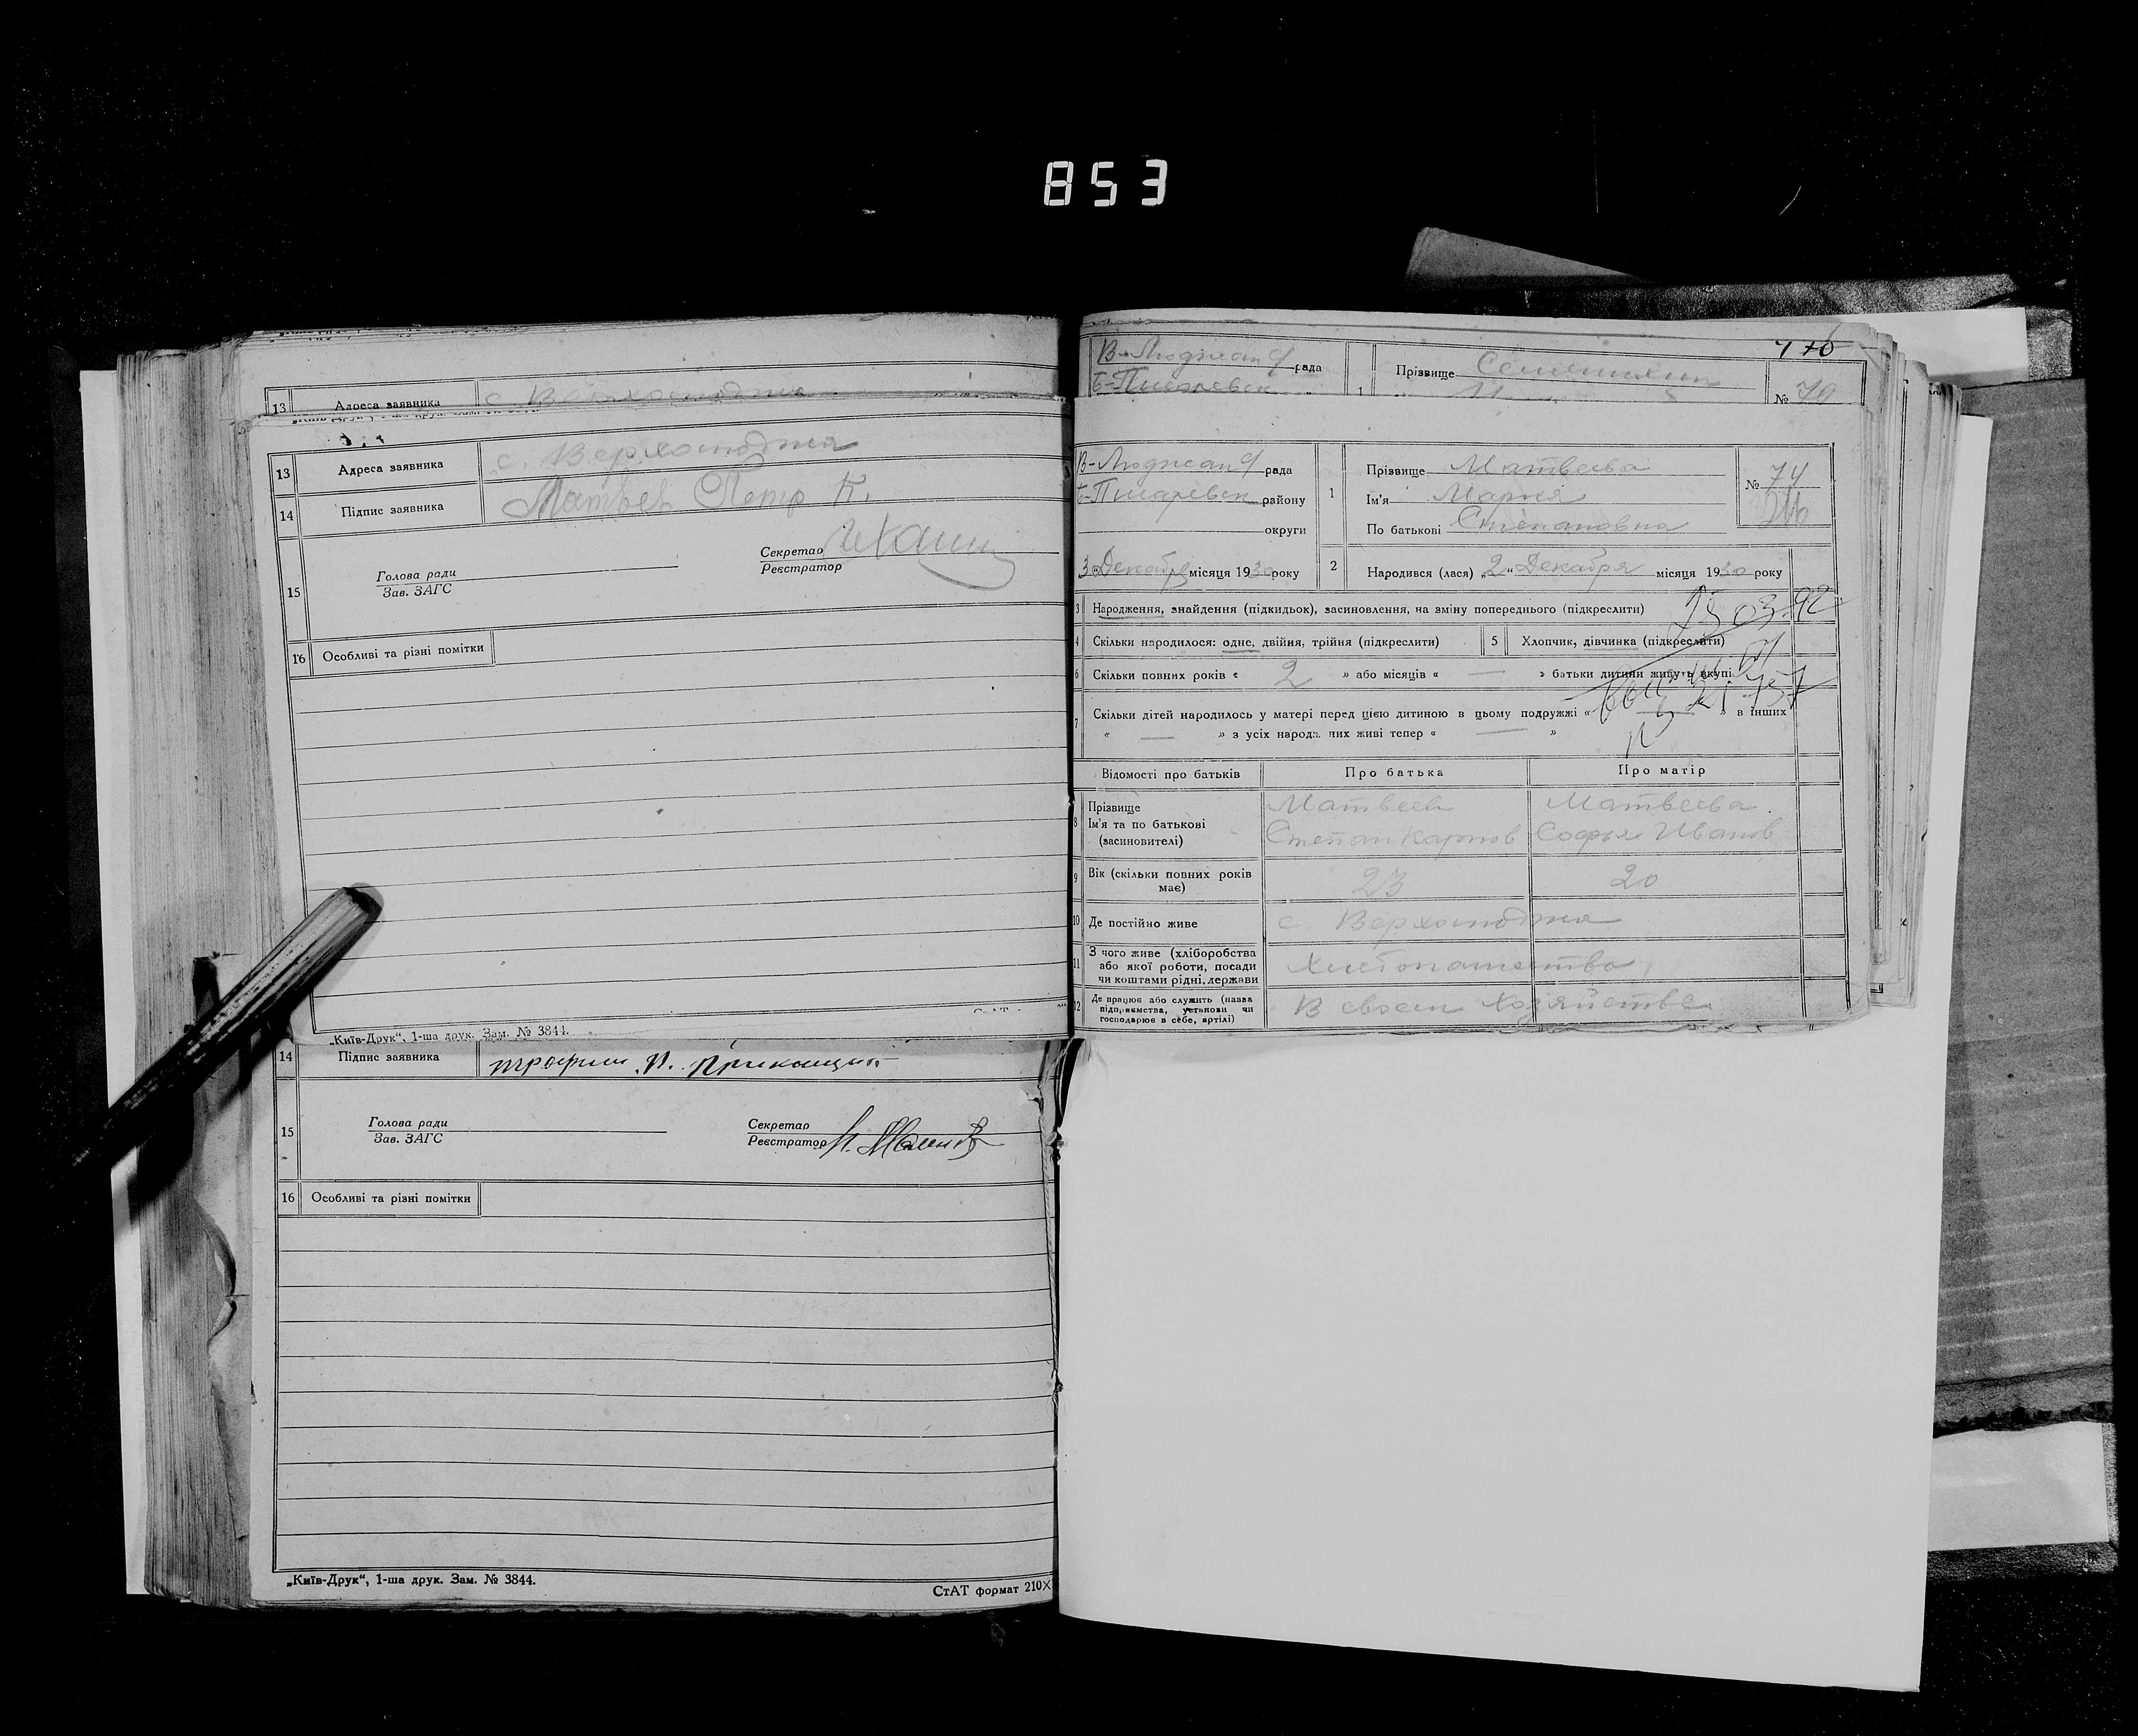 853
13 Адреса заявника
13 Адреса заявника с. Верхолюджа
14 Підпис заявника Матвев Петр К.
Секретар
Реєстратор
15 Голова ради
Зав. ЗАГС
16 Особливі та різні помітки
„Київ-Друк“, 1-ша друк. Зам. № 3844.
14 Підпис заявника трофим П.
15 Голова ради
Зав. ЗАГС
Секретар
Реєстратор
16 Особливі та різні помітки
„Київ-Друк“, 1-ша друк. Зам. № 3844.
СтАТ формат 210×
рада
1 Прізвище
№ 70
В-Люджан рада
Б-Писаревск району
округи
1 Прізвище Матвеева
Ім'я Мария
По батькові Степановна
№ 74
3 Декабря місяця 1930 року
2 Народився (лася) „2“ Декабря місяця 1930 року
3 Народження, знайдення (підкидьок), засиновлення, на зміну попереднього (підкреслити)
4 Скільки народилося: одне, двійня, трійня (підкреслити)
5 Хлопчик, дівчинка (підкреслити)
6 Скільки повних років « 2 » або місяців « — » батьки дитини живуть вкупі
7 Скільки дітей народилось у матері перед цією дитиною в цьому подружжі « » в інших
« — » з усіх народж. них живі тепер « — »
Відомості про батьків Про батька Про матір
8 Прізвище Матвеев Матвеева
Ім'я та по батькові Степан Карпов Софья Иванов
(засиновителі)
9 Вік (скільки повних років має) 23 20
10 Де постійно живе с. Верхолюджа
11 З чого живе (хліборобства
або якої роботи, посади
чи коштами рідні, держави
Хлебопашество
12 Де працює або служить (назва
підприємства, установи чи
господарює в себе, артілі)
В своем хозяйстве